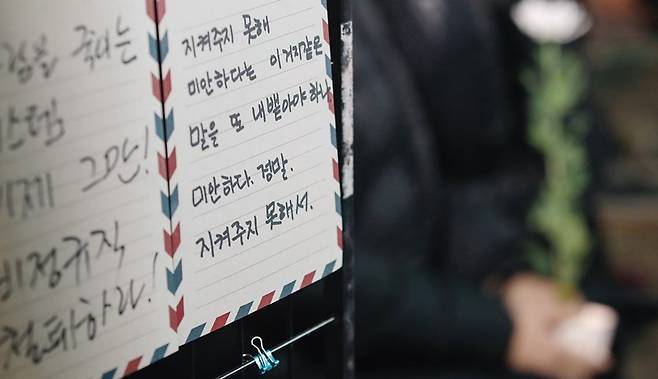 람을 죽이는
스템
이제 그만!
비정규직
철폐하라!
지켜주지 못해
미안하다는 이 거지같은
말을 또 내뱉아야 하나
미안하다. 정말.
지켜주지 못해서.